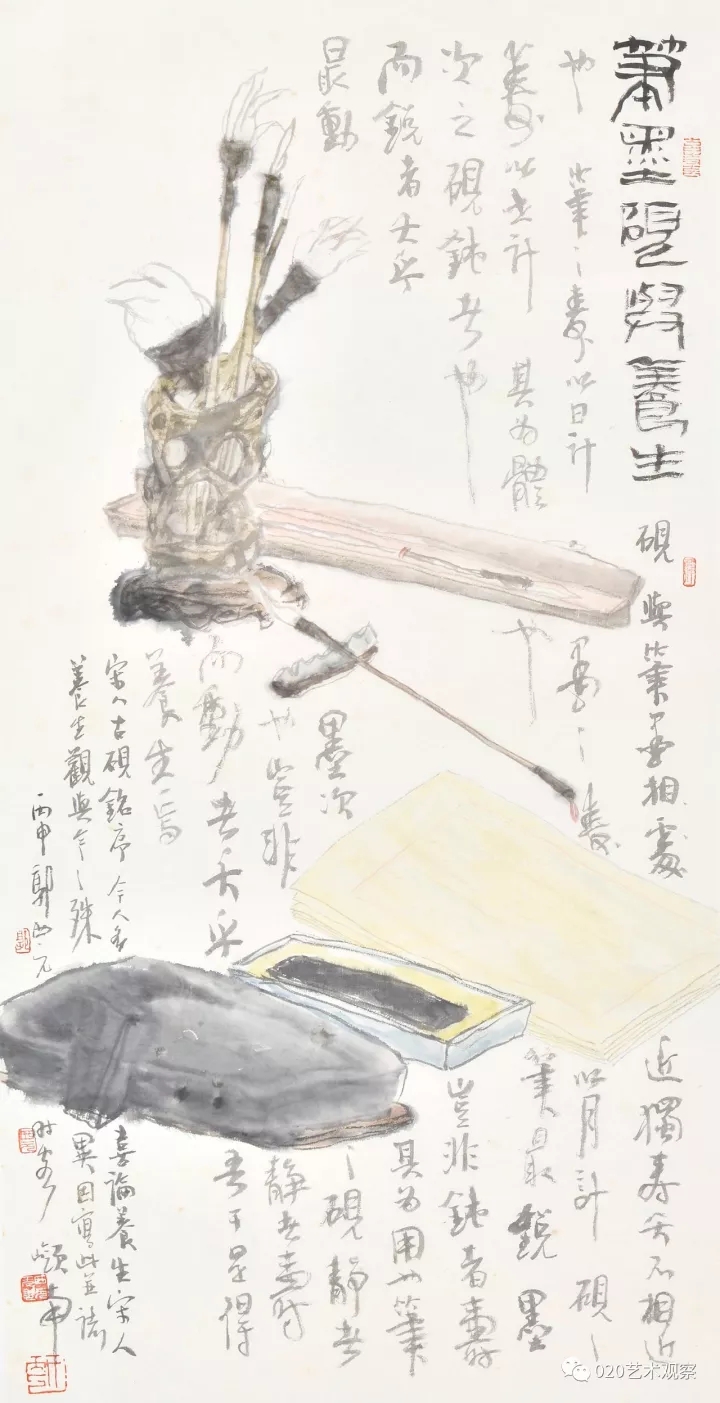 筆墨硯與養生
硯與筆墨相處近獨壽夭不相近
也筆之壽以日計墨之壽以月計硯之
壽以世計其为體也筆最銳墨
次之硯鈍者也豈非鈍者壽
而銳者夭乎其為用也筆
最動墨次之硯靜者
也豈非靜者壽
而動者夭乎吾于是得
養生焉
宋人古硯銘序今人多喜論養生宋人
養生觀與今之殊異因寫此並識
丙申郭西元時客嶺南
020艺术观察